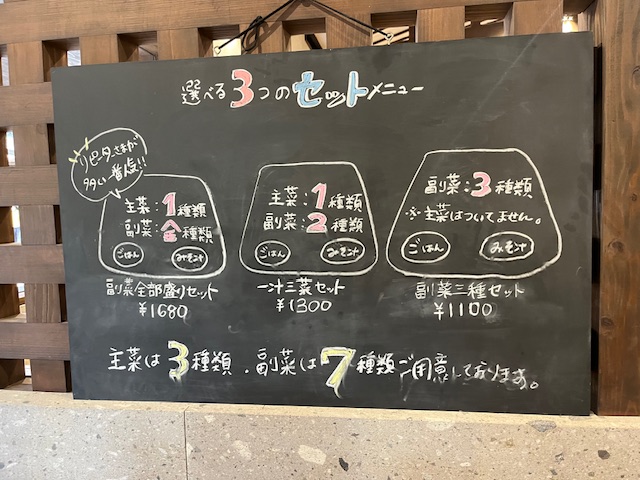 選べる3つのセットメニュー
リピーターさまが
多い一番人気!!
主菜:1種類
副菜:全種類
ごはん みそ汁
副菜全部盛りセット
¥1680
主菜:1種類
副菜:2種類
ごはん みそ汁
一汁三菜セット
¥1300
副菜:3種類
※主菜はついてません。
ごはん みそ汁
副菜三種セット
¥1100
主菜は3種類、副菜は7種類ご用意しております。